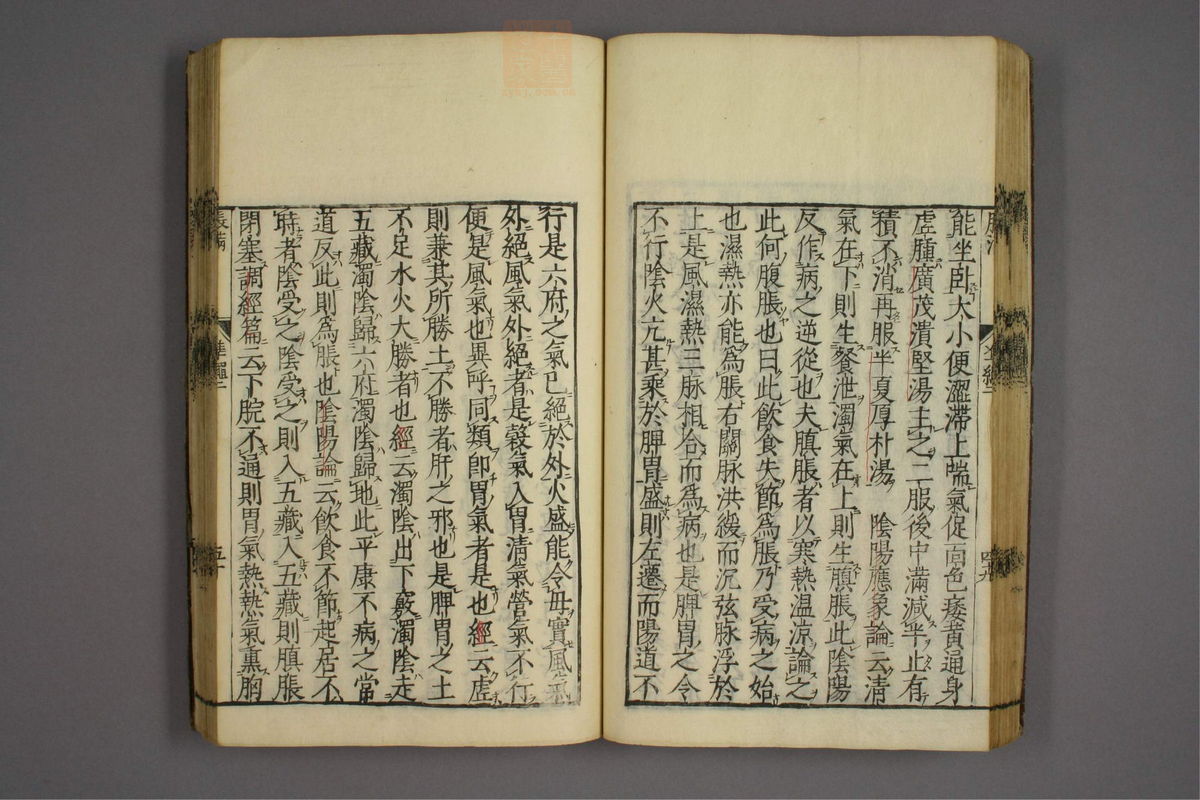 能坐卧大小便澀滞上喘氣促面色痿黄通身
虚腫廣茂潰堅湯主之二服後中滿減半止有
積不消再服半夏厚朴湯 陰陽應象論云清
氣在下則生飱泄濁氣在上則生䐜脹此陰陽
反作病之逆從也夫䐜脹者以寒熱温凉論之
此何腹脹也曰此飲食失節為脹乃受病之始
也濕熱亦能為脹右關脉洪緩而沉弦脉浮於
上是風濕熱三脉相合而為病也是脾胃之令
不行陰火亢甚乗於脾胃盛則左遷而陽道不
行是六府之氣已絕於外火盛能令母實風氣
外絕風氣外絕者是穀氣入胃清氣營氣不行
便是風氣也異呼同類即胃氣者是也經云虚
則兼其所勝土不勝者肝之邪也是脾胃之土
不足水火大勝者也經云濁陰出下竅濁陰走
五藏濁陰歸六府濁陰歸地此平康不病之常
道反此則為脹也陰陽論云飲食不節起居不
時者陰受之陰受之則入五藏入五藏則䐜脹
閉塞調經篇云下脘不通則胃氣熱熱氣熏胸